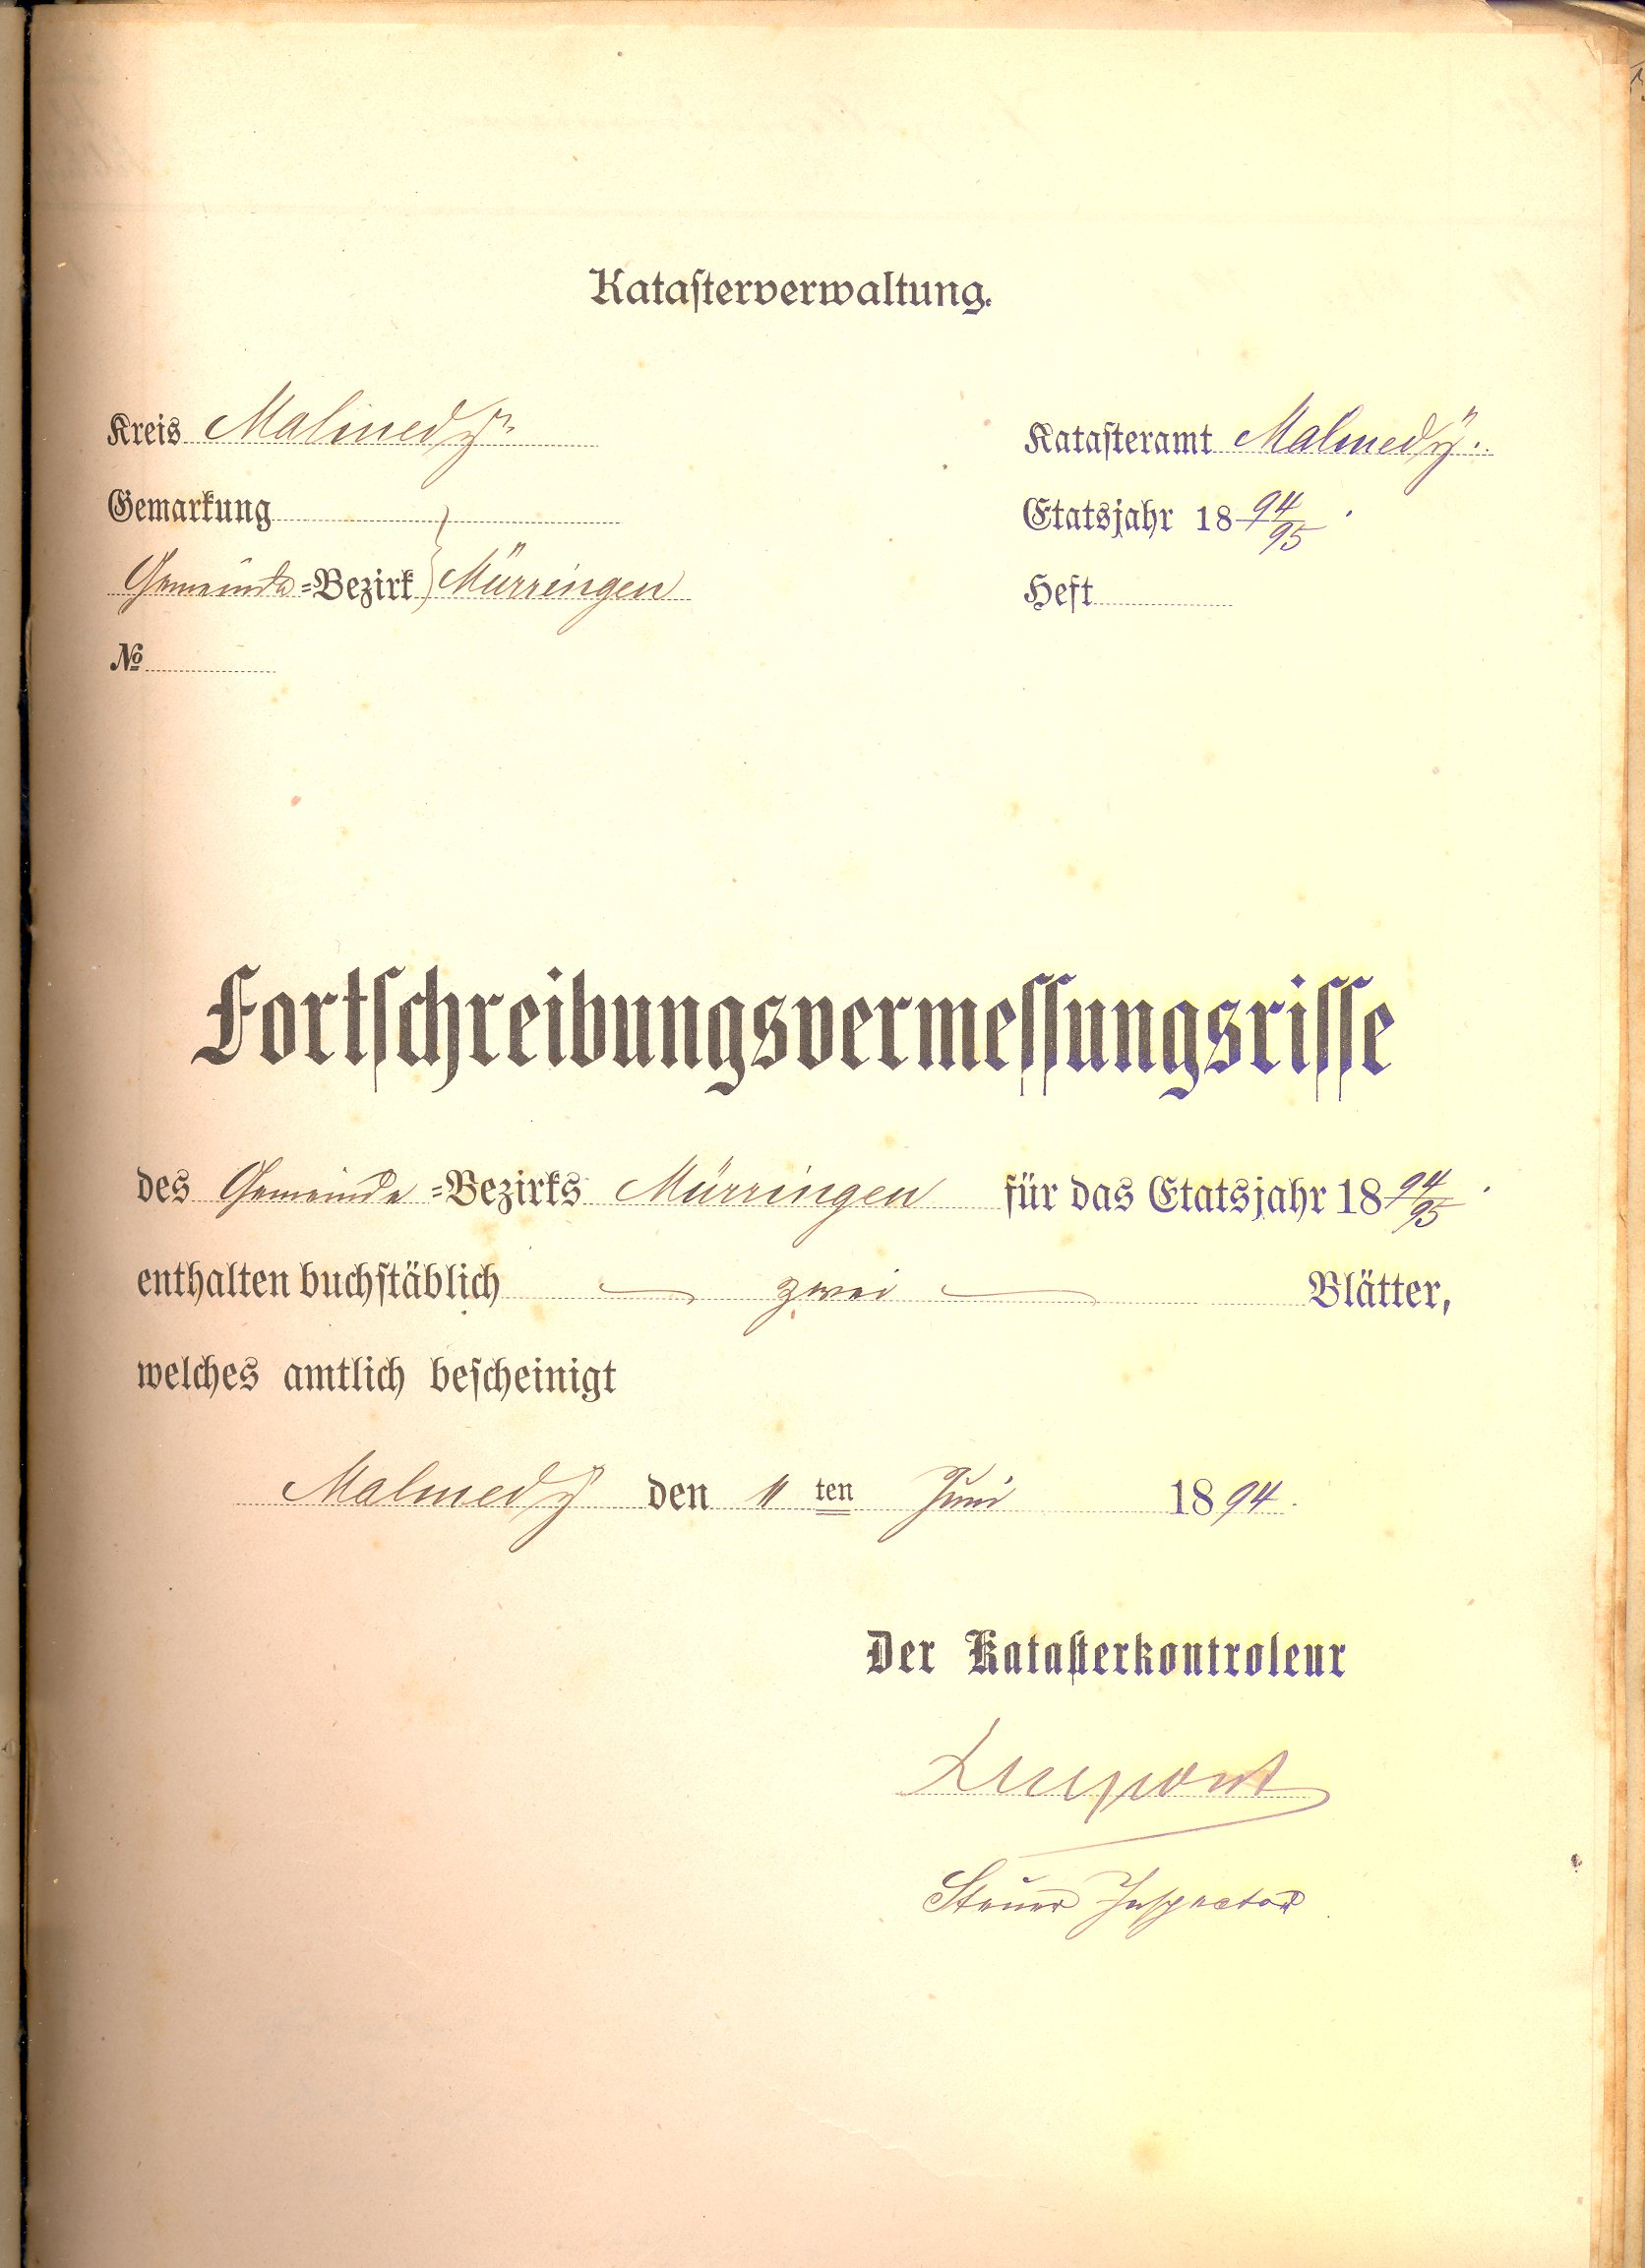 Katasterverwaltung.
Kreis Malmedÿ
Katasteramt Malmedÿ.
Gemarkung
Etatsjahr 18 94/95.
Gemeinde-Bezirk } Mürringen
Heft
No
Fortschreibungsvermessungsrisse
des Gemeinde-Bezirks Mürringen für das Etatsjahr 18 94/95.
enthalten buchstäblich — zwei — Blätter,
welches amtlich bescheinigt
Malmedÿ den 11 ten Juni 1894.
Der Katasterkontroleur
Steuer Inspector